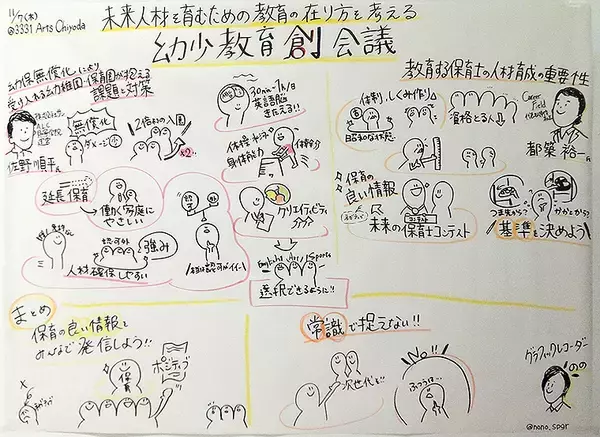 11/7(木)
@3331 Arts Chiyoda
未来人材を育むための教育の在り方を考える
幼少教育創会議
幼保無償化により
受け入れる幼稚園・保育園が抱える
課題と対策
佐野順平氏
無償化
ダメージ
2倍
×2…
延長保育
働く家庭に
やさしい
認可外
強み
人材確保しやすい
30min~1h/日
英語脳
きたえる!!
体操
身体能力
クリエイティビティ
English
Art
Sports
選択できるように!!
教育する保育士の人材育成の重要性
体制、しくみ作り
資格とる人
Career
Field
都築裕一氏
保育の
良い情報
コンテスト
未来の保育士コンテスト
つま先から?
かかとから?
基準を決めよう
まとめ
保育の良い情報を
みんなで発信しよう!!
保育
ポジティブ
常識で捉えない!!
次世代も
No!!
ふつうは…
グラフィックレコーダー
のの
@nono_spgr